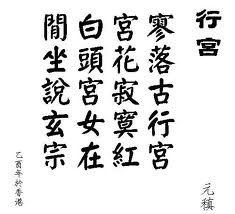 行宮
寥落古行宮
宮花寂寞紅
白頭宮女在
閒坐說玄宗
元稹
乙酉年於香港